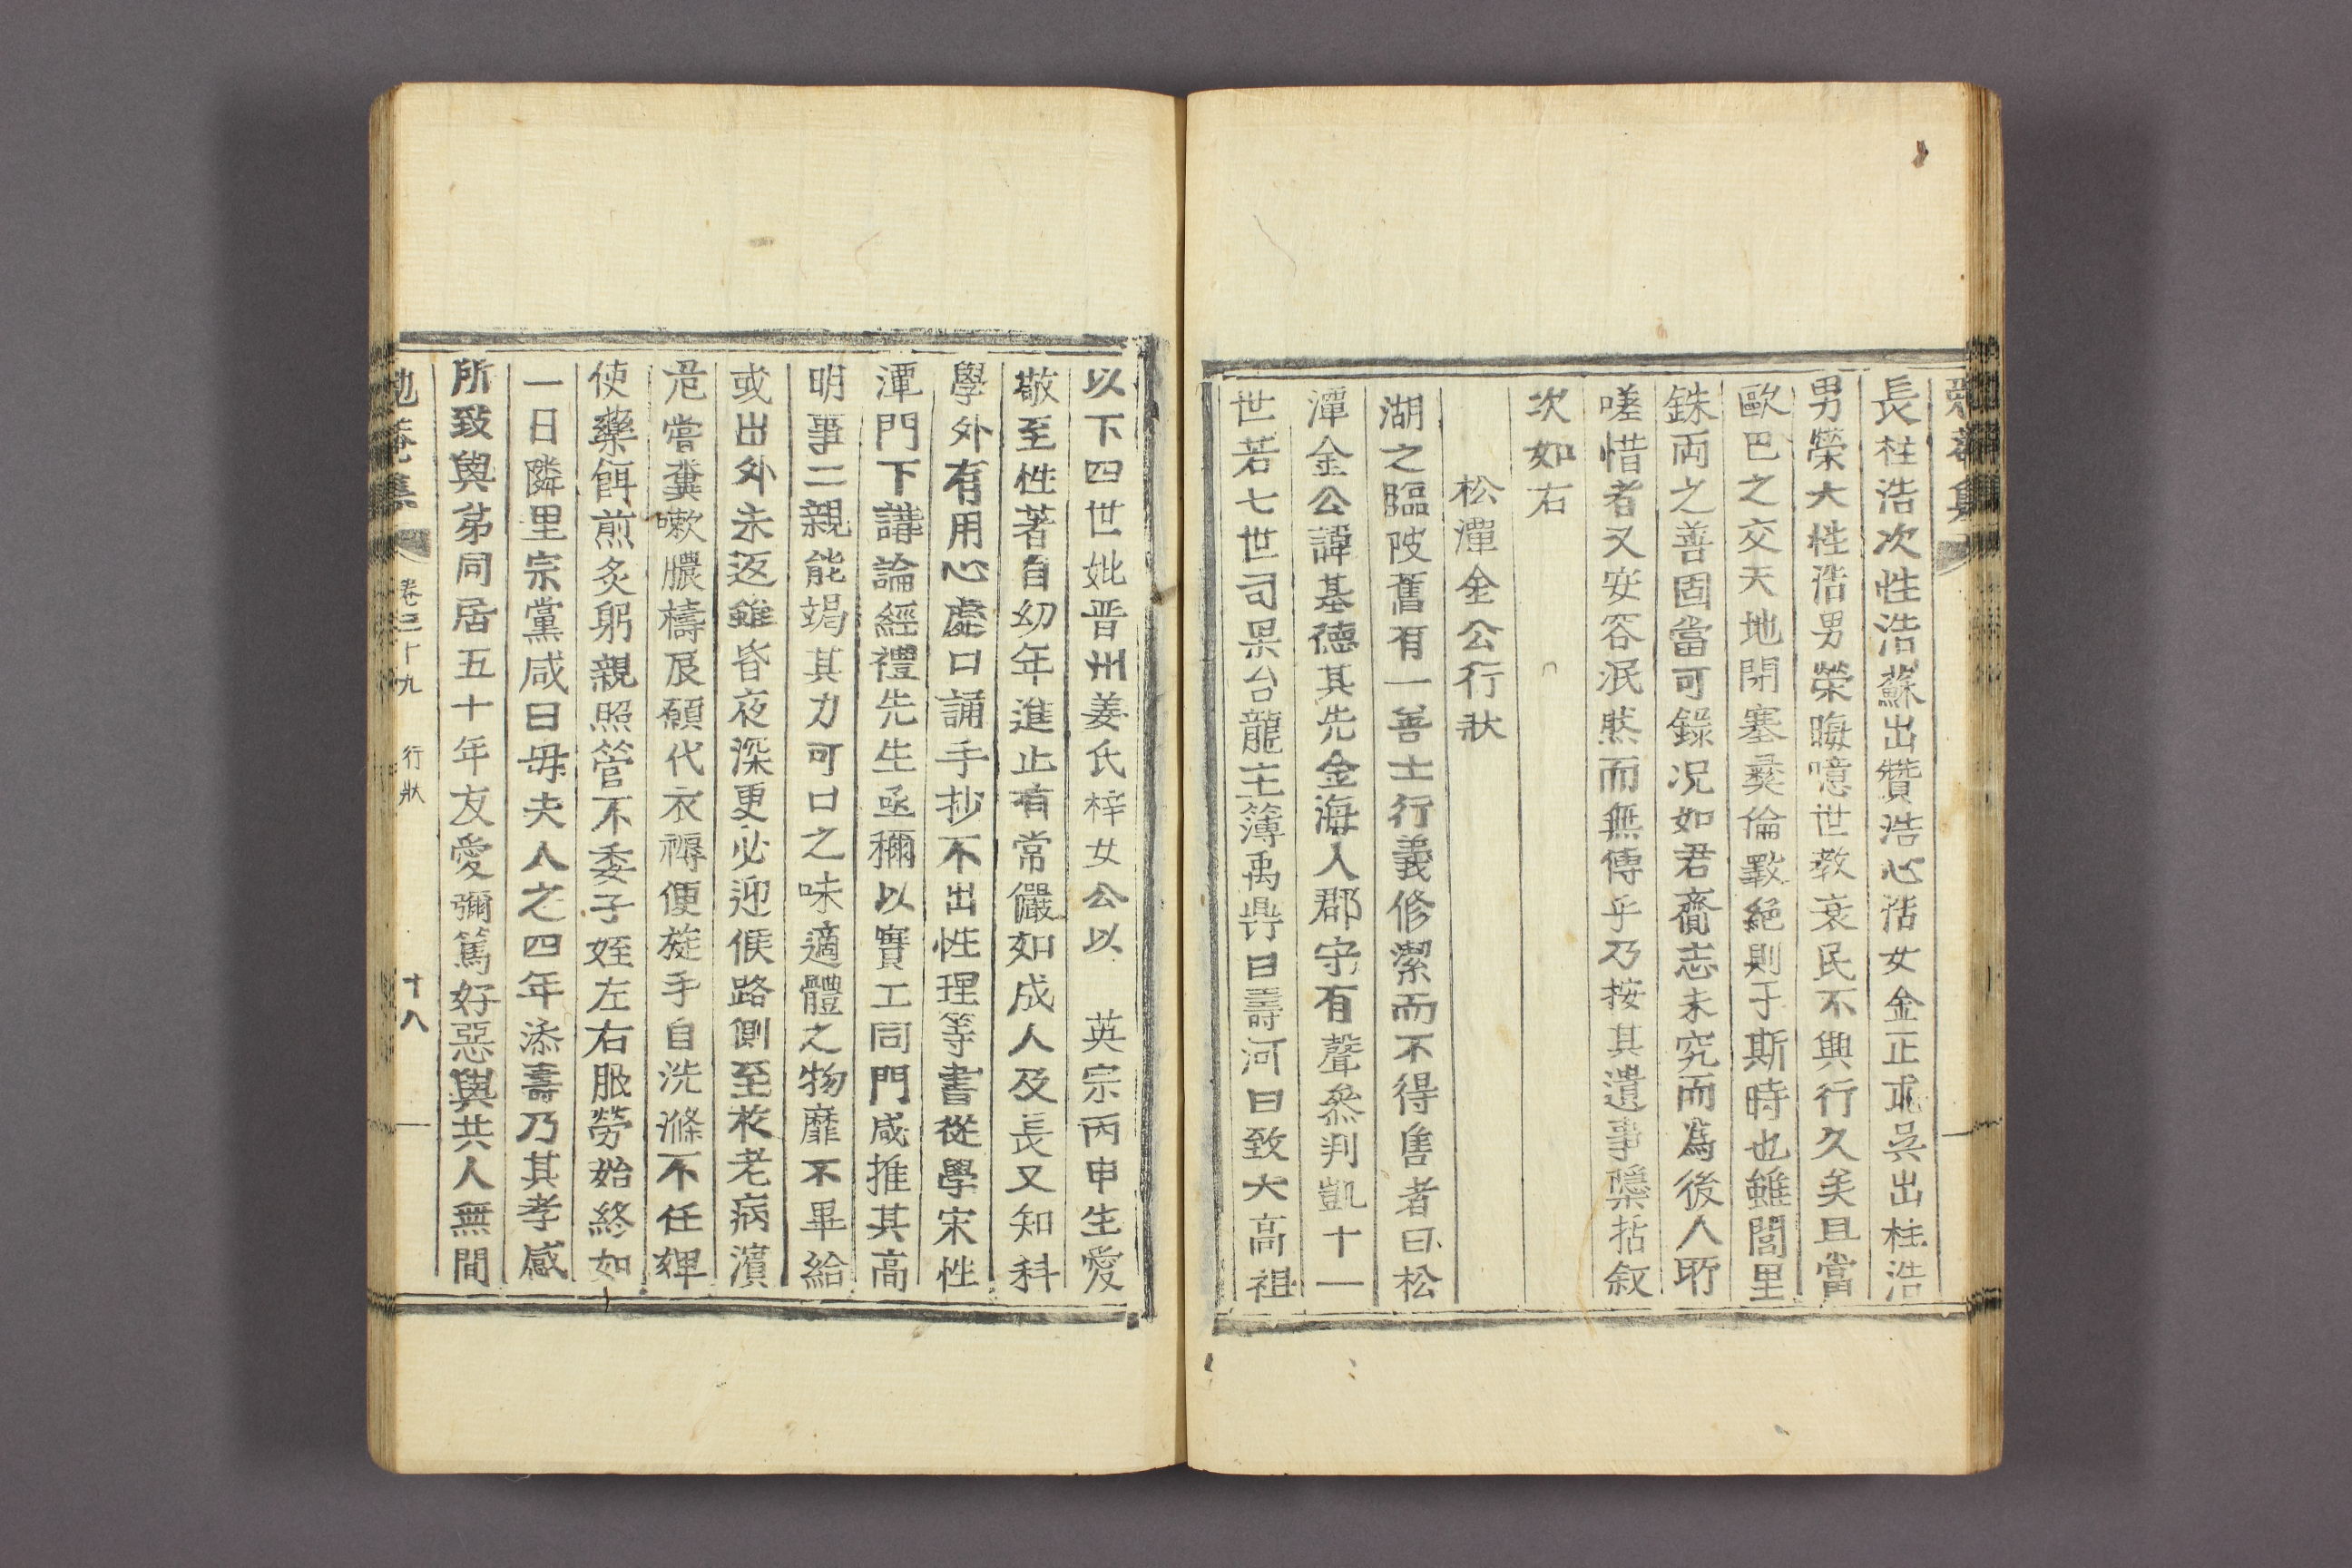 長柱浩次性浩蘇出贊浩心浩女金正彧吳出柱浩
男榮大性浩男榮晦噫世教衰民不興行久矣且當
歐巴之交天地閉塞彛倫斁絕則于斯時也雖閭里
銖両之善固當可錄况如君齎志未究而為後人所
嗟惜者又安容泯然而無傳乎乃按其遺事檃括叙
次如右
松潭金公行狀
湖之臨陂舊有一善士行義修潔而不得售者曰松
潭金公諱基德其先金海人郡守有聲叅判凱十一
世若七世司果台龍主簿禹鼎曰壽河曰致大高祖
以下四世妣晋州姜氏梓女公以 英宗丙申生愛
敬至性著自幼年進止有常儼如成人及長又知科
學外有用心處口誦手抄不出性理等書從學宋性
潭門下講論經禮先生亟稱以實工同門咸推其高
明事二親能竭其力可口之味適體之物靡不畢給
或出外未返雖昏夜深更必迎候路側至於老病濱
危嘗糞嗽膿禱辰願代衣褥便旋手自洗滌不任婢
使藥餌煎灸躬親照管不委子姪左右服勞始終如
一日隣里宗黨咸曰毋夫人之四年添壽乃其孝感
所致與弟同居五十年友愛彌篤好惡與共人無間
卷三十九 行狀 十八